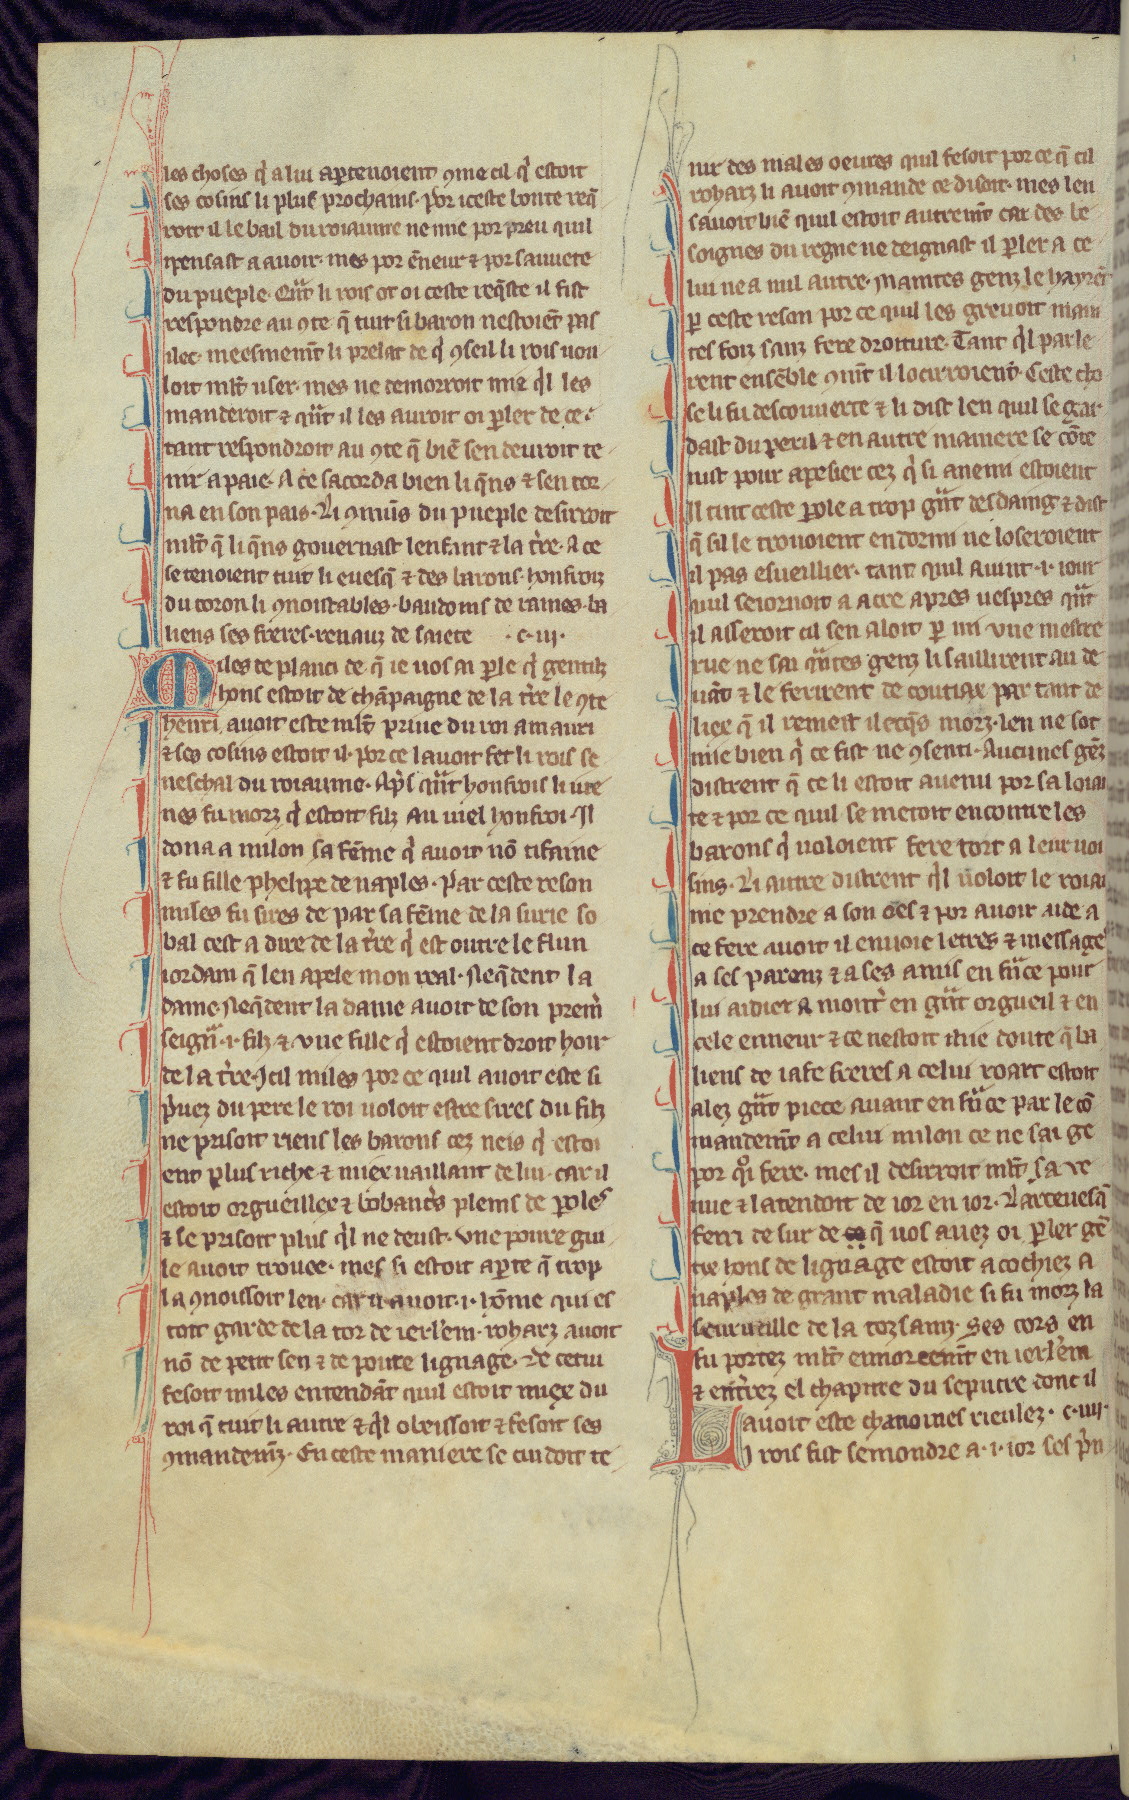 les choses q̓ a lui aꝑtenoient ꝯme cil q̓ estoit
ses cosins li plus prochains· por iceste bonte req̃
roit il le bail du roiaume ne mie por preu quil
ipensast a auoir· mes por ẽneur ⁊ por sauuete
du pueple· Q̃ut li rois ot oi ceste req̃ste il fist
respondre au ꝯte q̃ tuit si baron nestoiẽt pas
ilec· meesmem̃t li prelat de q̓ ꝯseil li rois uou
loit ml̃t user· mes ne demorroit mie q̓l les
manderoit ⁊ q̃ut il les auroit oi ꝑler de ce·
tant respondroit au ꝯte q̃ biẽ sen deuroit te
nir a paie· A ce sacorda bien li q̃ns ⁊ sen tor
na en son pais· Li ꝯmũs du pueple desirroit
ml̃t q̃ li q̃ns gouernast lenfant ⁊ la t̓re· A ce
se tenoient tuit li euesq̃ ⁊ des barons· honfroiz
du toron li ꝯnoistables· baudoins de rames· ba
liens ses freres· renauz de saiete ·c·iii·
Miles de planci de q̃ ie uos ai ꝑle q̓ gentilz
hons estoit de chãpaigne de la t̓re le ꝯte
henri, auoit este ml̃t priue du roi amauri
⁊ ses cosins estoit il· por ce lauoit fet li rois se
neschal du roiaume· Ap̓s q̃ut honfrois li iue
nes fu morz q̓ estoit filz au uiel honfroi· Il
dona a milon sa fẽme q̓ auoit nõ tifaine
⁊ fu fille phelipe de naples· Par ceste reson
miles fu sires de par sa fẽme de la surie so
bal cest a dire de la t̓re q̓ est outre le flun
iordain q̃ len apele mon real· Neq̃dent la
dame· Neq̃dent la dame auoit de son prem̓
seign̓· ·i· filz ⁊ vne fille q̓ estoient droit hoir
de la t̓re· Icil miles por ce quil auoit este si
p̓uez du pere le roi uoloit estre sires du filz
ne prisoit riens les barons cez neis q̓ estoi
ent plus riche ⁊ miex uaillant de lui· car il
estoit orgueillex ⁊ bobanc̓s pleins de ꝑoles
⁊ se prisoit plus q̓l ne deust· vne poure gui
le auoit trouee· mes si estoit aꝑte q̃ trop
la ꝯnoissoit len· car il auoit ·i· hõme qui es
toit garde de la tor de ierl̓em· roharz auoit
nõ de petit sen ⁊ de poure lignage· De cetui
fesoit miles entendãt quil estoit miex du
roi q̃ tuit li autre ⁊ q̓l obeissoit ⁊ fesoit ses
ꝯmandem̃z· En ceste maniere se cuidoit te
nir des males oeures quil fesoit por ce q̃ cil
roharz li auoit ꝯmande ce disoit· mes len
sauoit biẽ quil estoit autrem̃t car des be
soignes du regne ne deignast il ꝑler a ce
lui ne a nul autre· Maintes genz le hayrẽt
ꝑ ceste reson por ce quil les greuoit main
tes foiz sanz fere droiture· Tant q̓l parle
rent ensẽble ꝯm̃t il locirroient· Ceste cho
se li fu descouuerte ⁊ li dist len quil se gar
dast du peril ⁊ en autre maniere se cõte
nist pour apesier cez q̓ si anemi estoient
Il tint ceste ꝑole a trop g̃nt desdaing ⁊ dist
q̃ sil le trouoient endormi ne loseroient
il pas esueillier· tant quil auint ·i· iour
quil seiornoit a acre apres uespres q̃ut
il asseroit cil sen aloit ꝑ mi vne mestre
rue ne sai q̃utes genz li saillirent au de
uãt ⁊ le ferirent de coutiax par tant de
liex q̃ il remeit ilecq̃s morz· len ne sot
mie bien q̓ ce fist ne ꝯsenti· Aucunes gẽz
distrent q̃ ce li estoit auenu por sa loiau
te ⁊ por ce quil se metoit encontre les
barons q̓ uoloient fere tort a leur uoi
sins· Li autre distrent q̓l uoloit le roiau
me prendre a son oes ⁊ por auoir aide a
ce fere auoit il enuoie letres ⁊ message
a ses parenz ⁊ a ses amis en f̃nce pour
lui aidier a mont̓ en g̃nt orgueil ⁊ en
cele enneur ⁊ ce nestoit mie doute q̃ ba
liens de iafe freres a celui roart estoit
alez g̃nt piece auant en f̃nce par le cõ
mandem̃t a celui milon ce ne sai ge
por q̓i fere· mes il desirroit ml̃t sa ve
nue ⁊ latendoit de ior en ior· Larceuesq̃
ferri de sur de q̃ uos auez oi ꝑler gẽ
tix hons de lignage estoit acochiez a
naples de grant maladie si fu morz la
seurueille de la tozsainz· Ses cors en
fu portez ml̃t ennoreem̃t en ierl̓em
⁊ ent̓rez el chapitre du sepucre dont il
auoit este chanoines rieulez· c·iiii·
Li rois fist semondre a ·i· ior ses p̓n